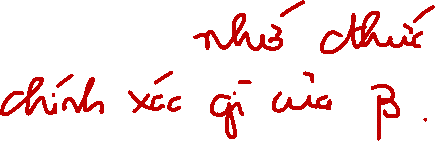 nhớ thức
chính xác gì của β.